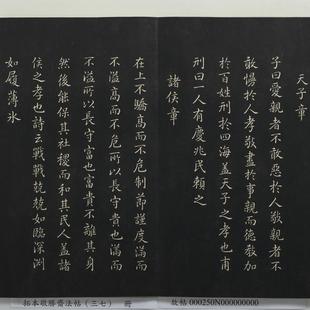 天子章
子曰愛親者不敢惡於人敬親者不
敢慢於人孝敬盡於事親而德教加
於百姓刑於四海蓋天子之孝也甫
刑曰一人有慶兆民賴之
諸侯章
在上不驕高而不危制節謹度滿而
不溢高而不危所以長守貴也滿而
不溢所以長守富也富貴不離其身
然後能保其社稷而和其民人蓋諸
侯之孝也詩云戰戰兢兢如臨深淵
如履薄冰
拓本敬勝齋法帖（三七） 冊
故帖 000250N000000000